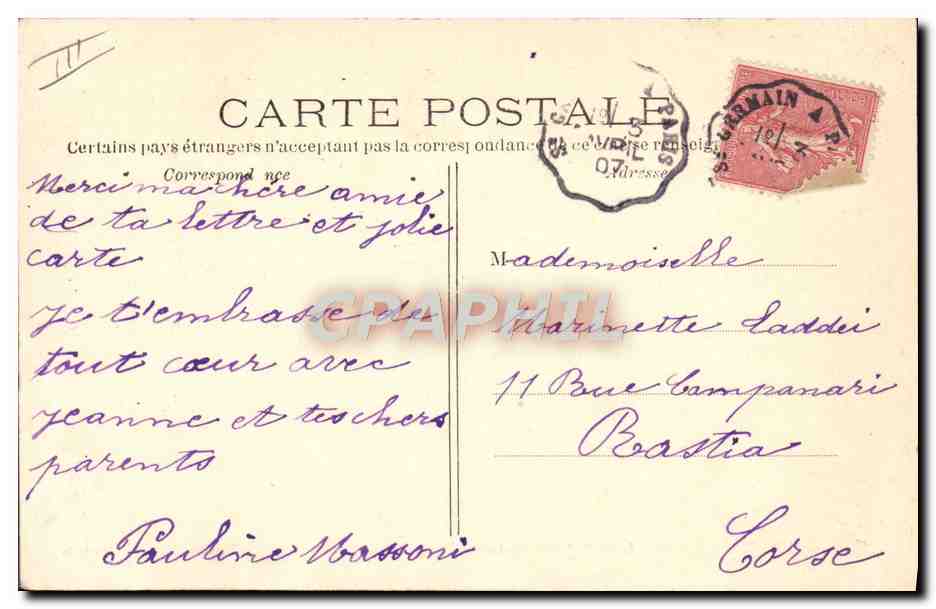 III
CARTE POSTALE
Certains pays étrangers n'acceptant pas la correspondance
Correspond nce
Adresse
ST GERMAIN A PARIS
AVRIL
07
PARIS
Merci ma chère amie
de ta lettre et jolie
carte
Je t'embrasse de
tout cœur avec
Jeanne et tes chers
parents
Pauline Massoni
Mademoiselle
Marinette Taddei
11 Rue Campanari
Bastia
Corse
CPAPHIL